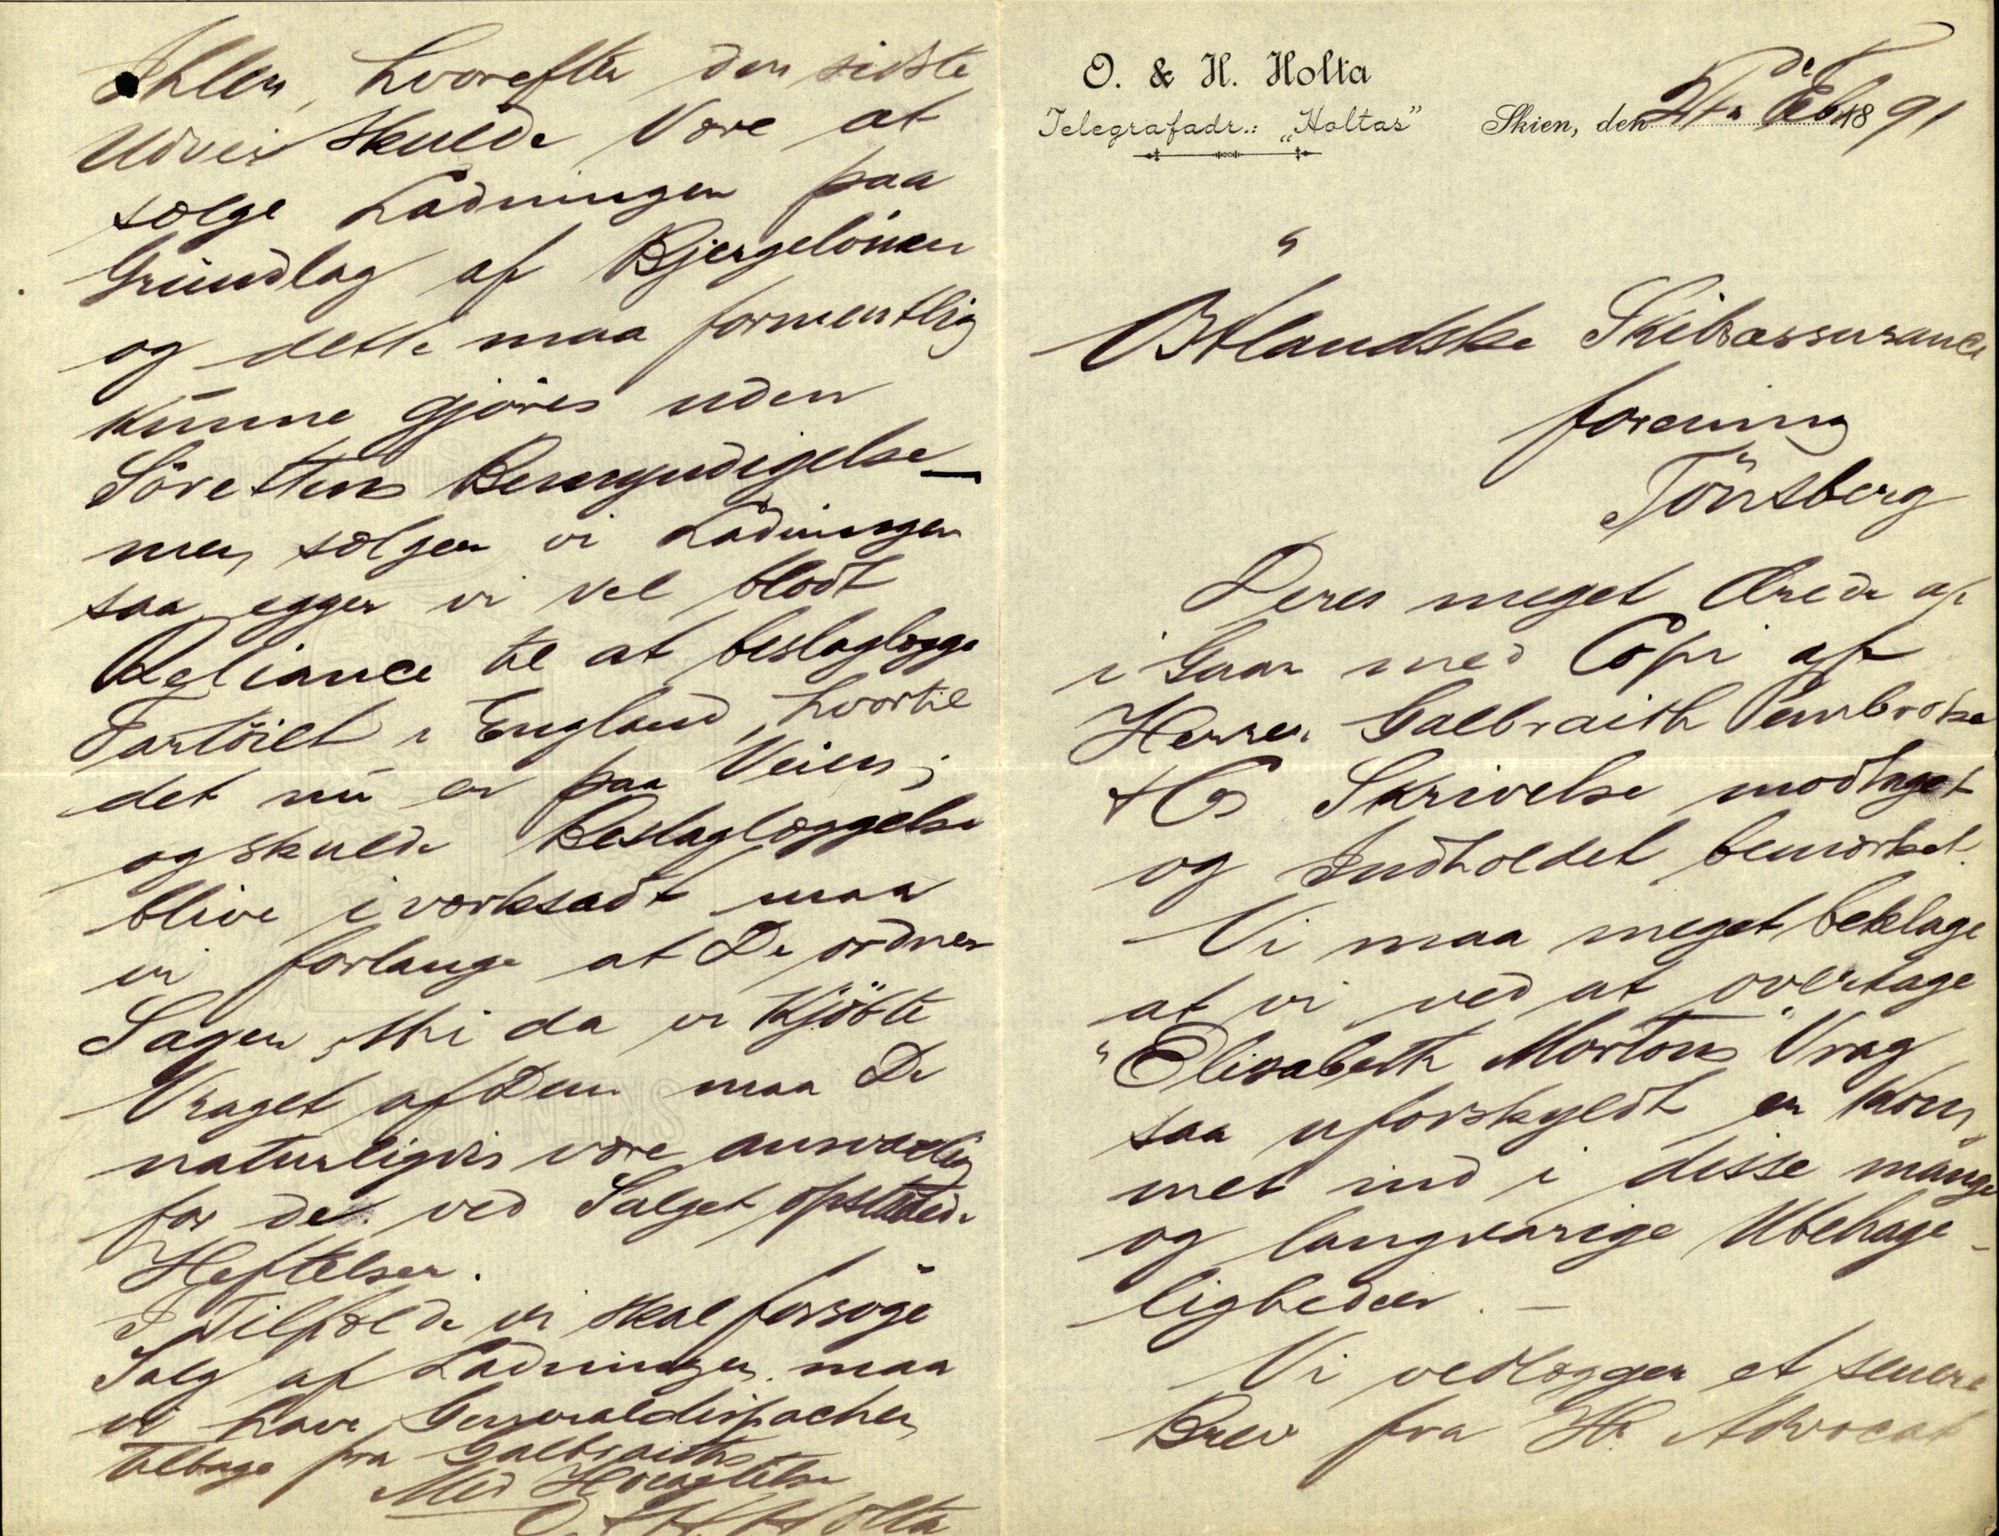 O. & H. Holta
Telegrafadr.: „Holtas”
Skien, den 24 de Feb 1891
Østlandske Skibsassurance
forening
Tönsberg
Deres meget Ærede af
i Gaar med Copi af
Herrer Galbraith Pembroke
& Co Skrivelse modtaget
og Indholdet bemærket.
Vi maa meget beklage
at vi ved at overtage
"Elisabeth Mortons" Vrag
saa uforskyldt er kom-
met ind i disse mange
og langvarige Ubehage-
ligheder. —
Vi vedlægger et senere
Brev fra Hr. Advocat
Ihlen, hvorefter den sidste
Udvei skulde være at
sælge Ladningen paa
Grundlag af Bjergelönnen
og dette maa formentlig
kunne gjöres uden
Sörettens Bemyndigelse —
men sælger vi Ladningen
saa egger vi vel blodt
Reliance til at beslaglægge
Fartöiet i England, hvortil
det nu er paa Veien;
og skulde Beslaglæggelse
blive iværksadt maa
vi forlange at De ordner
Sagen, thi da vi Kjöbte
Vraget af Dem maa De
naturligvis være ansvarlig
for de ved Salget opstaaede
Heftelser.
I Tilfælde vi skal forsöge
Salg af Ladningen maa
vi have Generaldispachen
tilbage fra Galbraiths
Med Høiagtelse
O. & H. Holta